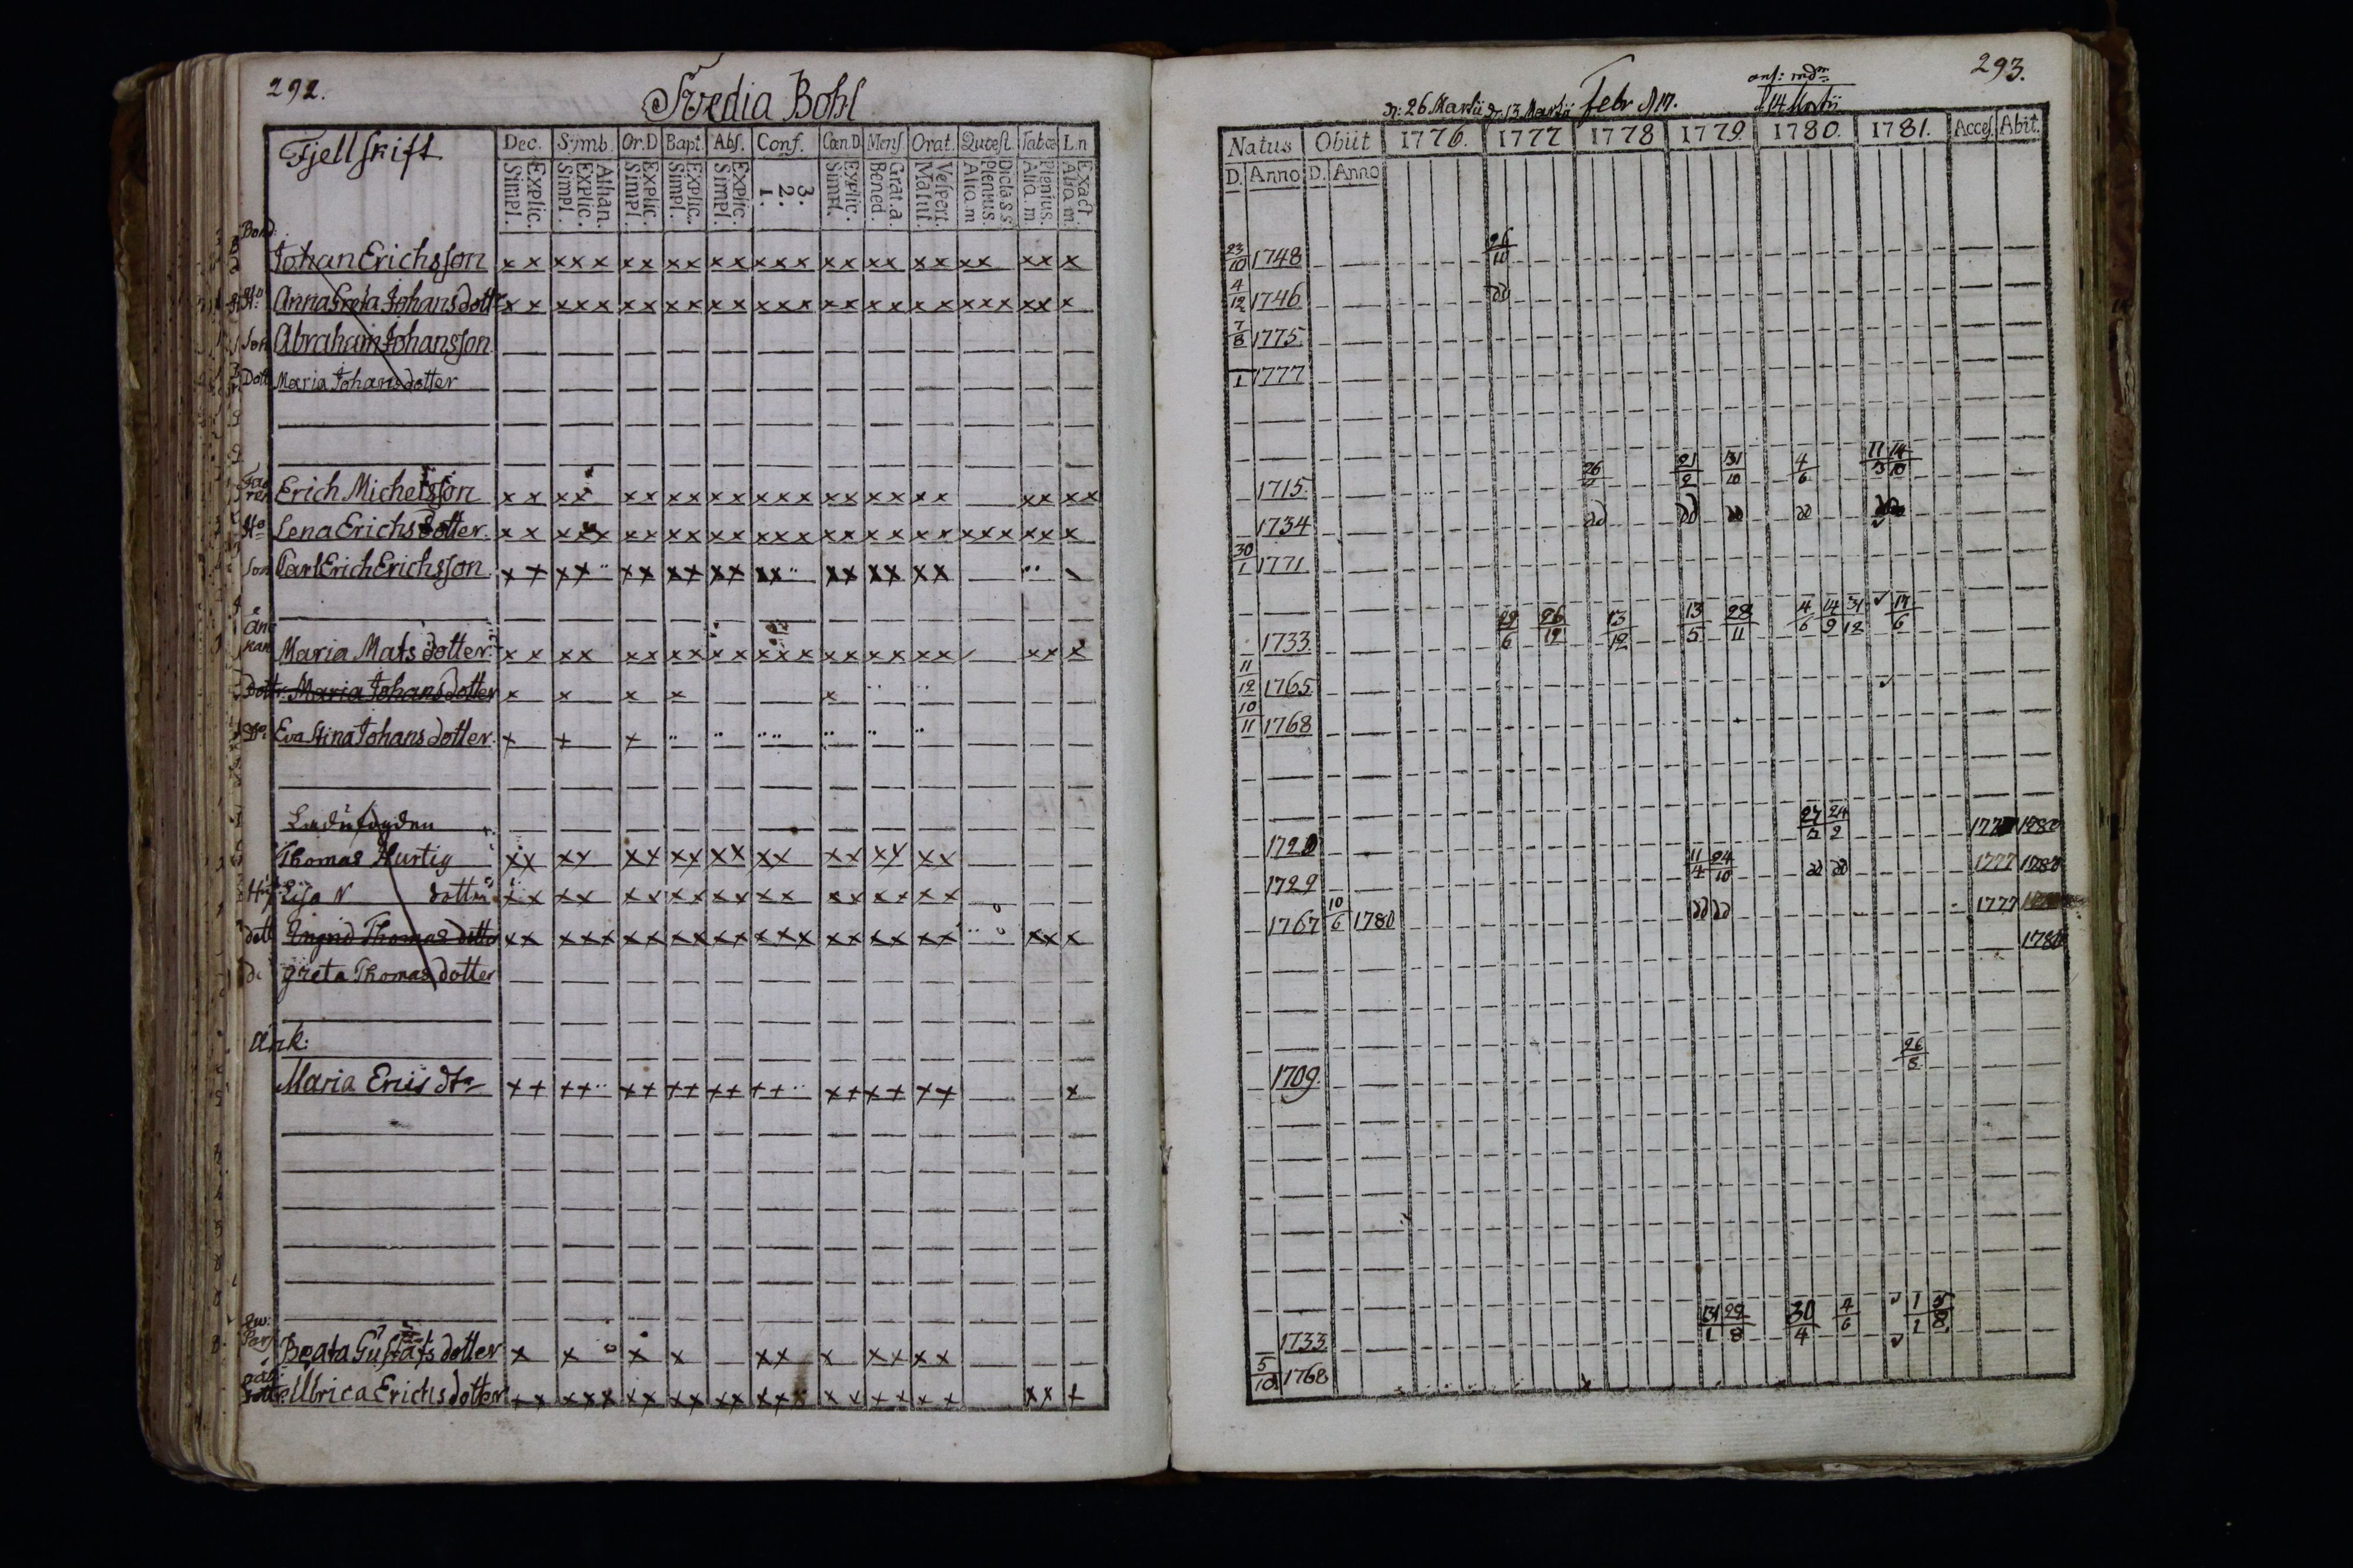 292.
Svedia Bohl
Fjellskift
Dec. Symb. Or.D Bapt. Abs. Conf. Cœn.D Mens. Orat. Quæst. Tabœ L.n
Explic. Simpl. Athan. Explic. Simpl. Explic. Simpl. Explic. Simpl. Explic. Simpl. 3. 2. 1. Explic. Simpl. Grat. a. Bened. Vespert. Matut. Dicta s.s. Plenius. Aliq. m Plenius. Aliq. m. Exact. Aliq. m.
Bond:
Johan Erichsson x x x x x x x x x x x x x x x x x x x x x x x x x
Anna Greta Johansdotter x x x x x x x x x x x x x x x x x x x x x x x x x x
Son Abraham Johansson
Dott Maria Johansdotter
Erich Michelsson
Lena Erichsdotter
Son Carl Erich Erichsson
Maria Matsdotter
Dottr Maria Johansdotter
Eva Stina Johansdotter
Ladufogden
Thomas Hurtig
Lisa N dotter
dott Ingrid Thomasdotter
Greta Thomasdotter
Ank:
Maria Eriis dtr
Beata Gustafsdotter
Ulrica Erichsdotter
293.
26 Martii 13 Martii Febr 17.
14 Martii
Natus Obiit 1776. 1777 1778 1779. 1780. 1781. Acces. Abit.
D. Anno D. Anno
23/10 1748 26/10
4/12 1746 dd
7/8 1775.
1 1777
1715. 21/2 31/10 4/6 11/3 14/10
1734 dd dd dd dd
30/1 1771
1733. 29/6 26/12 13/12 13/5 28/11 4/6 14/9 31/12 17/6
11/12 1765
10/11 1768
27/2 24/2 1780
1729 11/4 24/10 dd dd 1777 1780
1767 10/6 1780 dd dd 1777
1780
1709. 26/8
1733 31/1 29/8 30/4 4/6 1/1 5/8
5/10 1768